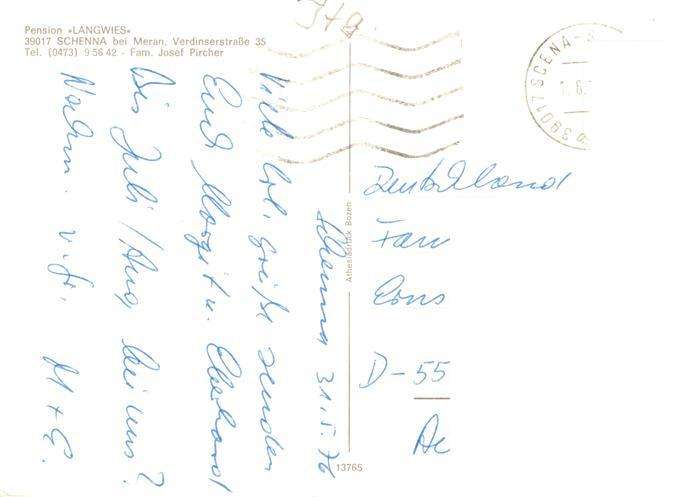 Pension »LANGWIES«
39017 SCHENNA bei Meran, Verdinserstraße 35
Tel. (0473) 9 56 42 - Fam. Josef Pircher
39017 SCENA - S
1.6.
Schenna 31.5.76
Viele hrl. Grüße senden
Euch Margit u. Eberhard
Bis Juli/Aug bei uns?
Nochm. v. Gr. M + E.
Athesiadruck Bozen
13765
Deutschland
Fam
D-55